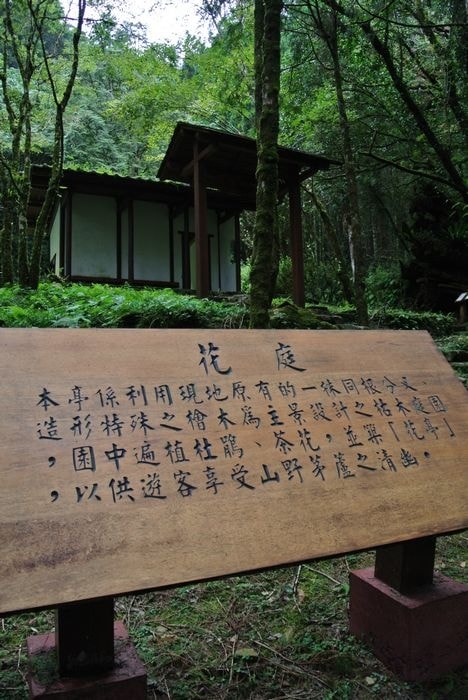 花庭
本亭係利用現地原有的一株同根分叉、
造形特殊之檜木為主景設計之枯木庭園
，園中遍植杜鵑、茶花，並築「花亭」
，以供遊客享受山野茅蘆之清幽。